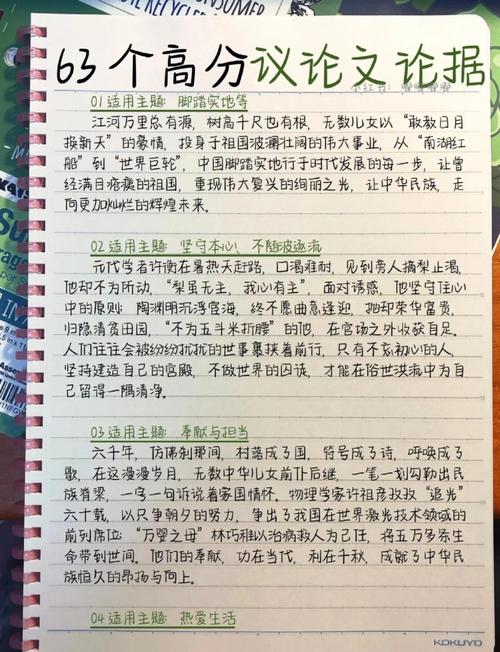 CONSUMER
RECYCLER
63个高分议论文论据
小红书:
01 适用主题: 脚踏实地等
江河万里总有源, 树高千尺也有根, 无数儿女以“敢教日月
换新天”的豪情, 投身于祖国波澜壮阔的伟大事业, 从“南湖红
船”到“世界巨轮”, 中国脚踏实地行于时代发展的每一步, 让曾
经满目疮痍的祖国, 重现伟大复兴的绚丽之光, 让中华民族, 走
向更加灿烂的辉煌未来。
02 适用主题: 坚守本心、不随波逐流
元代学者许衡在暑热天赶路, 口渴难耐, 见到旁人摘梨止渴,
他却不为所动, “梨虽无主, 我心有主”, 面对诱惑, 他坚守住心
中的原则; 陶渊明沉浮宦海, 终不愿曲意逢迎, 抛却荣华富贵,
归隐清贫田园, “不为五斗米折腰”的他, 在官场之外收获自足。
人们往往会被纷纷扰扰的世事裹挟着前行, 只有不忘初心的人,
坚持建造自己的宫殿, 不做世界的囚徒, 才能在俗世洪流中为自
己留得一隅清净。
03 适用主题: 奉献与担当
六千年, 仿佛刹那间, 村落成了国, 符号成了诗, 呼唤成了
歌, 在这漫漫岁月, 无数中华儿女前仆后继, 一笔一划勾勒出民
族脊梁, 一字一句诉说着家国情怀, 物理学家许祖彦孜孜“追光”
六十载, 以只争朝夕的努力, 争出了我国在世界激光技术领域的
前列席位; “万婴之母”林巧稚以治病救人为己任, 将五万多条生
命带到世间。他们的奉献, 功在当代, 利在千秋, 成就了中华民
族恒久的昂扬与向上。
04 适用主题: 热爱生活
KOKUYO